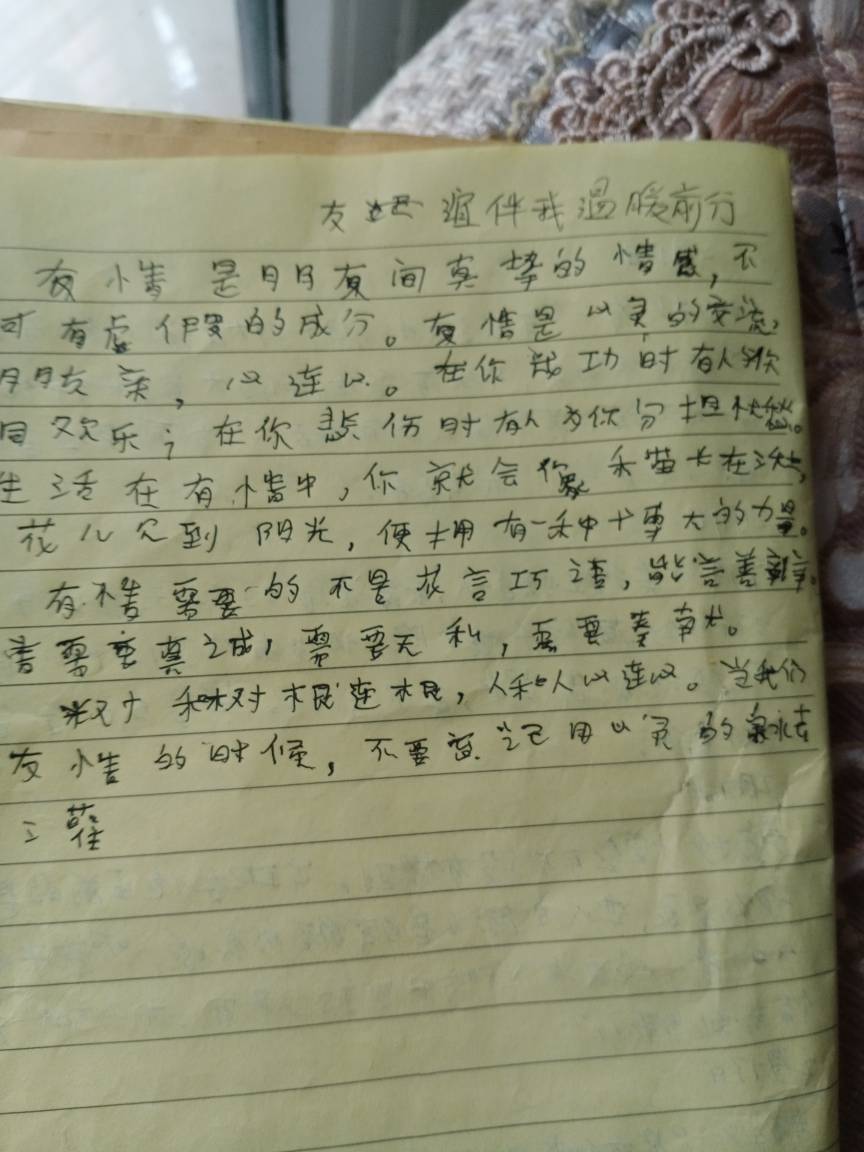 友谊伴我温暖前行
友情是朋友间真挚的情感,不
可有虚假的成分。友情是心灵的交流,
朋友亲,心连心。在你成功时有人跟你
同欢乐;在你悲伤时有人为你分担忧愁。
生活在友情中,你就会像禾苗长在沃土,
花儿见到阳光,便拥有一种十事大的力量。
友情需要的不是花言巧语,能言善辩。
需要真诚,需要无私,需要奉献。
树和树根连根,人和人心连心。当我们
友情的时候,不要忘记用心灵的泉水去
灌